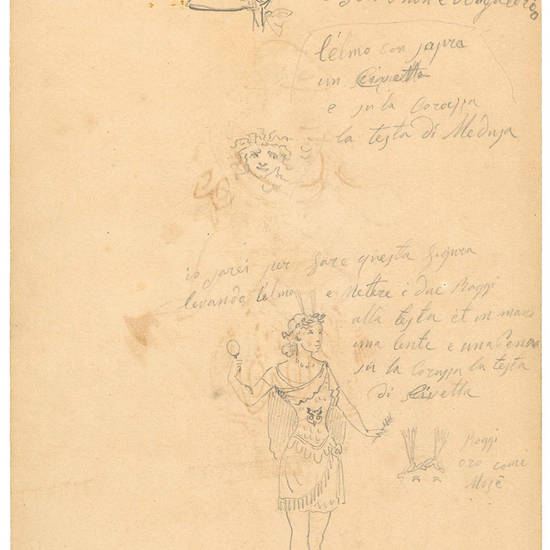 l'elmo con sopra
un Civetta
e su la Corazza
la testa di Medusa
io sarei per fare questa figura
levando l'elmo e Mettere i due Raggi
alla testa et in mano
una lente e una
su la Corazza la testa
di Civetta
Raggi
oro come
Mosè